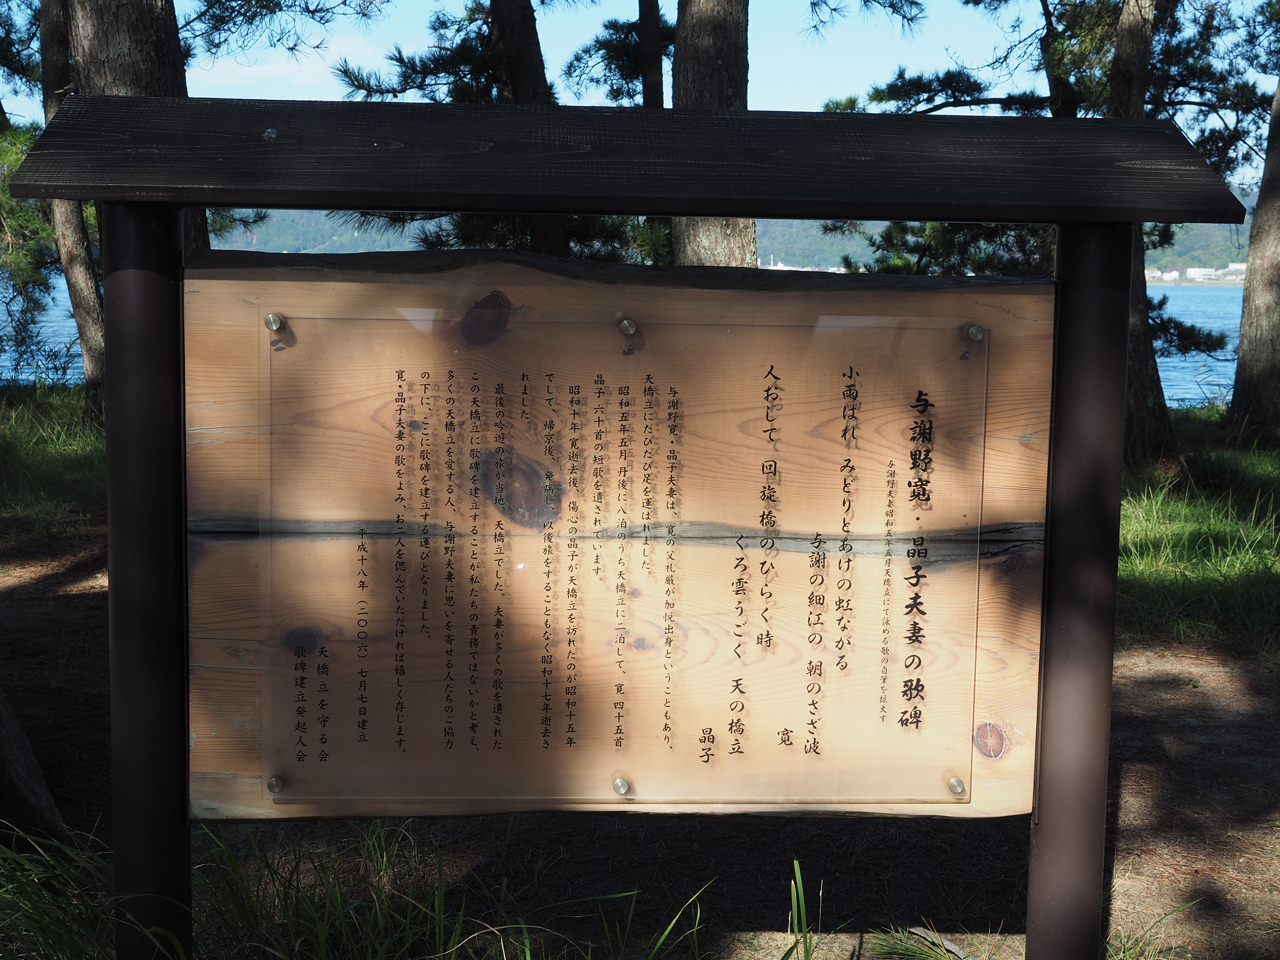 与謝野寛・晶子夫妻の歌碑
与謝野夫妻昭和五年五月天橋立にて詠める歌の自筆を拡大す
小雨はれ みどりとあけの虹ながる
与謝の細江の 朝のさざ波
寛
人おして 回旋橋のひらく時
くろ雲うごく 天の橋立
晶子
与謝野寛・晶子夫妻は、寛の父礼厳が加悦出身ということもあり、
天橋立にたびたび足を運ばれました。
昭和五年五月丹後に八泊のうち天橋立に二泊して、寛 四十五首
晶子 六十首の短歌を遺されています。
昭和十年寛逝去後、傷心の晶子が天橋立を訪れたのが昭和十五年
でして、帰京後、発病し、以後旅をすることもなく昭和十七年逝去さ
れました。
最後の吟遊の旅が当地、天橋立でした。夫妻が多くの歌を遺された
この天橋立に歌碑を建立することが私たちの責務ではないかと考え、
多くの天橋立を愛する人、与謝野夫妻に思いを寄せる人たちのご協力
の下に、ここに歌碑を建立する運びとなりました。
寛・晶子夫妻の歌をよみ、お二人を偲んでいただければ嬉しく存じます。
平成十八年(二〇〇六)七月七日建立
天橋立を守る会
歌碑建立発起人会